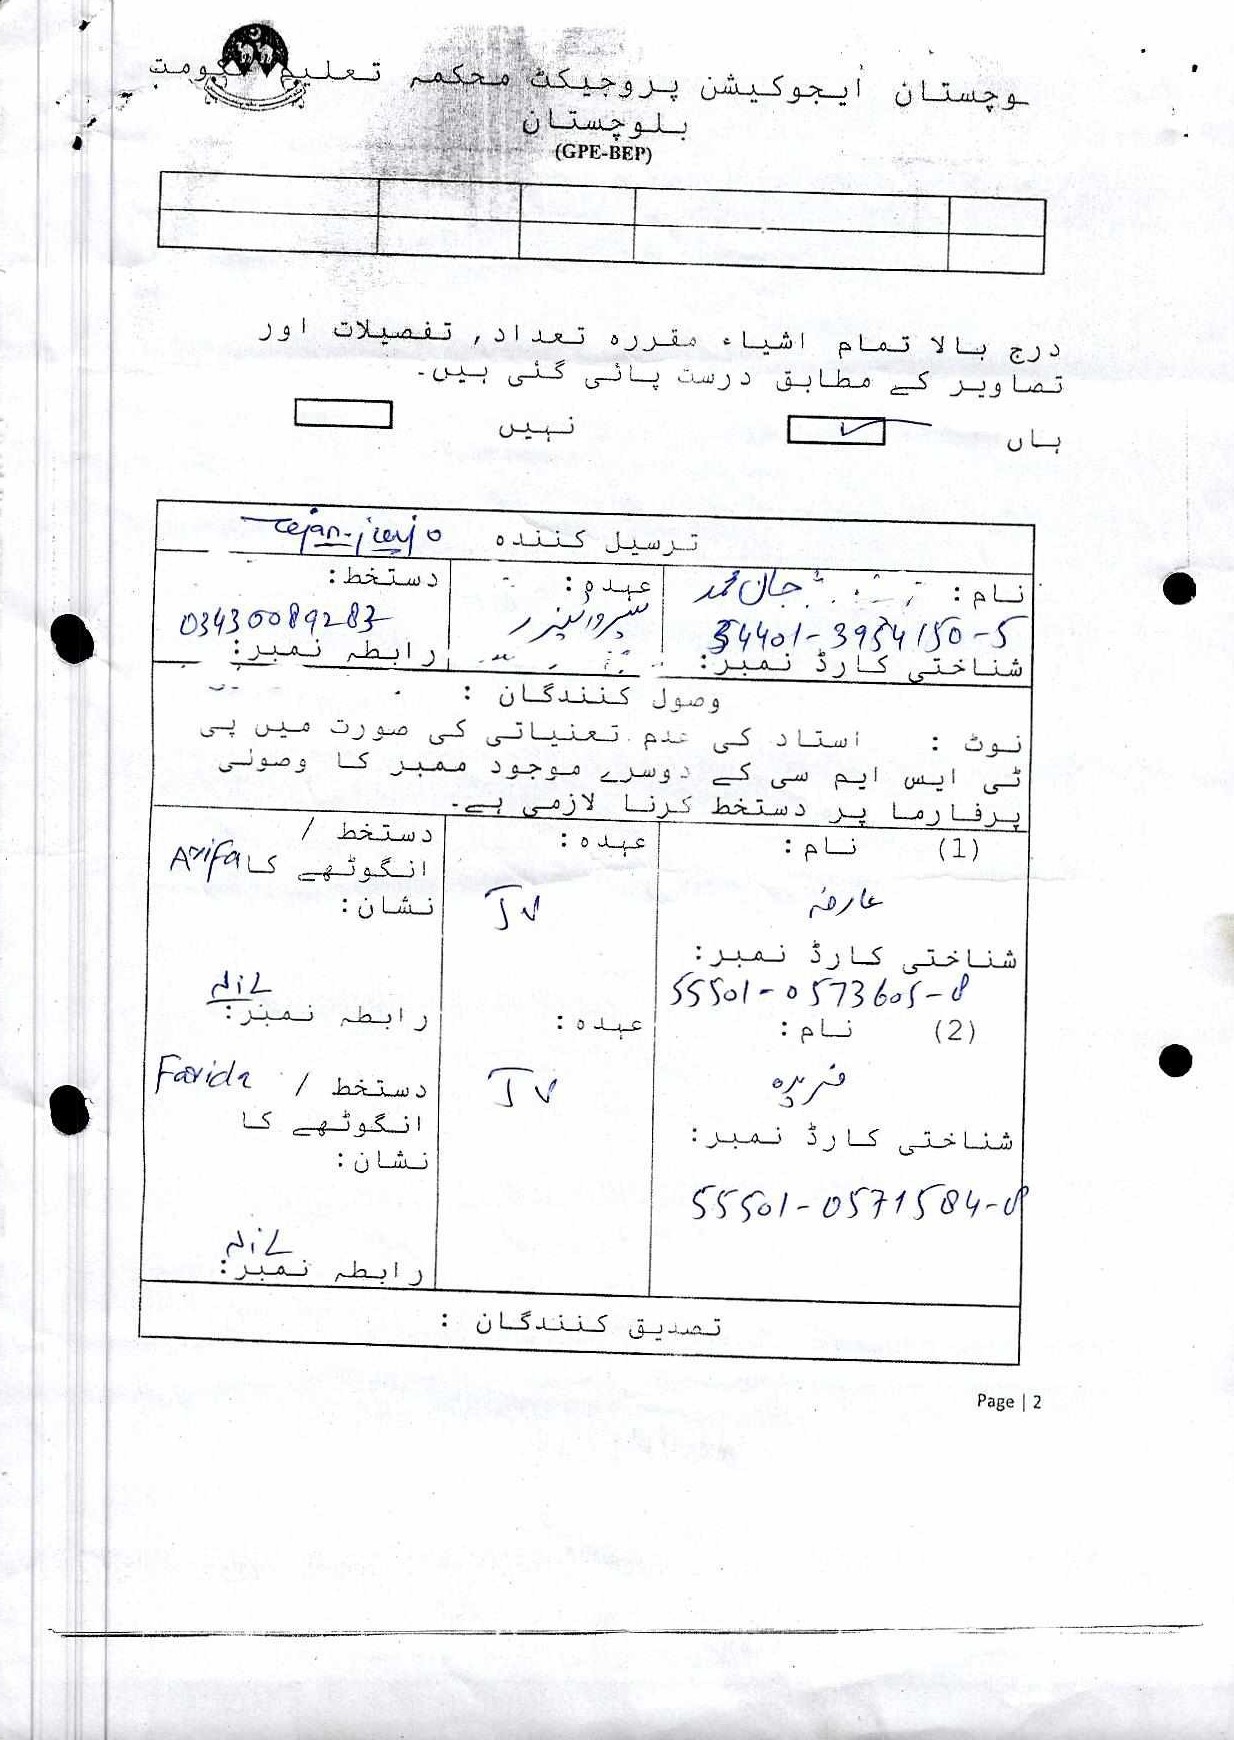 بلوچستان ایجوکیشن پروجیکٹ محکمہ تعلیم حکومت
بلوچستان
(GPE-BEP)
درج بالا تمام اشیاء مقررہ تعداد, تفصیلات اور
تصاویر کے مطابق درست پائی گئی ہیں۔
ہاں نہیں
ترسیل کنندہ
نام: جان محمد عہدہ: دستخط:
54401-3954150-5 سپروائیزر 03430089283
شناختی کارڈ نمبر: رابطہ نمبر:
وصول کنندگان :
نوٹ : استاد کی عدم تعنیاتی کی صورت میں پی
ٹی ایس ایم سی کے دوسرے موجود ممبر کا وصولی
پرفارما پر دستخط کرنا لازمی ہے۔
(1) نام: عہدہ: دستخط /
انگوٹھے کا Arifa
عارفہ JV نشان:
شناختی کارڈ نمبر:
55501-0573605-8 Nil
رابطہ نمبر:
(2) نام: عہدہ:
فریدہ JV دستخط / Farida
انگوٹھے کا
شناختی کارڈ نمبر: نشان:
55501-0571584-8
Nil
رابطہ نمبر:
تصدیق کنندگان :
Page | 2